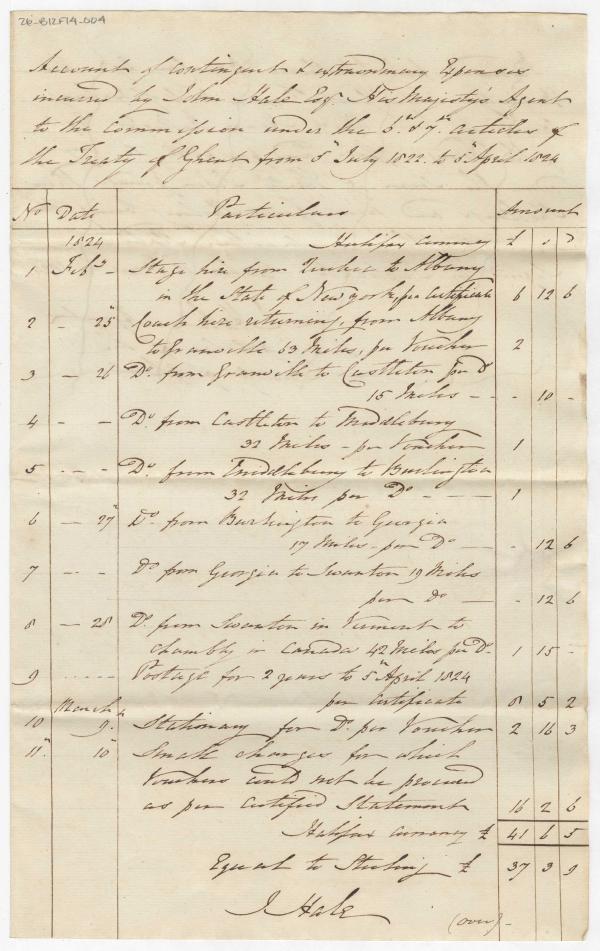 26-B12F14-004
Account of contingent & extraordinary Expenses
incurred by John Hale Esqr. His Majesty's Agent
to the Commission under the 6th & 7th articles of
the Treaty of Ghent from 5th July 1822 to 5th April 1824
No Date Particulars Amount
1824 Halifax Currency £ s D
1 Feby - Stage hire from Quebec to Albany
in the State of New york, per Certificate 6 12 6
2 - 25th Coach hire returning, from Albany
to Granville 63 Miles, per Voucher 2
3 - 26 Do. from Granville to Castleton per do
15 Miles - - - 10 -
4 - - Do from Castleton to Middlebury
32 Miles - per Voucher 1
5 - - - Do. from Middlebury to Burlington
32 Miles per Do - - - 1
6 - 27th Do. from Burlington to Georgia
17 Miles - per Do - - 12 6
7 - - - Do from Georgia to Swanton 19 Miles
per do - - 12 6
8 - 28 Do. from Swanton in Vermont to
Chambly in Canada 42 Miles per Do. 1 15 -
9 ..... Postage for 2 years to 5th April 1824
per Certificate 8 5 2
March
10 9th. Stationary for Do. per Voucher 2 16 3
11". 10th Small charges for which
Vouchers could not be procured
as per Certified Statement 16 2 6
Halifax Currency £ 41 6 5
Equal to Sterling £ 37 3 9
J Hale
(over) -